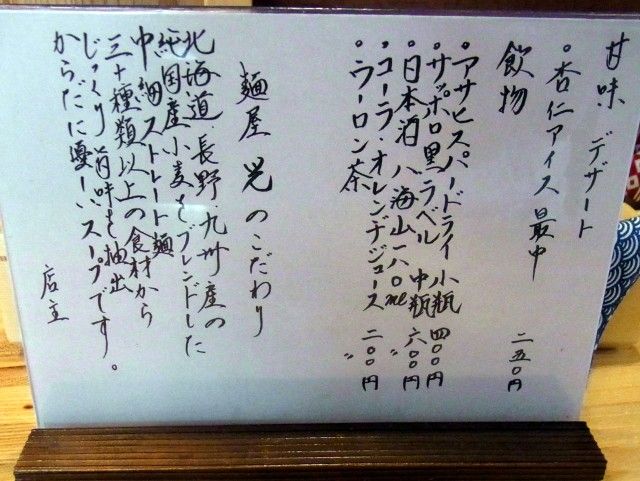 甘味 デザート
・杏仁アイス最中 二五〇円
飲物
・アサヒスパードライ 小瓶 四〇〇円
・サッポロ黒ラベル 中瓶 六〇〇円
・日本酒 八海山一八〇ml 〃
・コーラ・オレンヂジュース 二〇〇円
・ウーロン茶 〃
麺屋 光のこだわり
北海道・長野・九州産の
純国産小麦をブレンドした
中細ストレート麺
三十種類以上の食材から
じっくり旨味を抽出
からだに優しいスープです。
店主